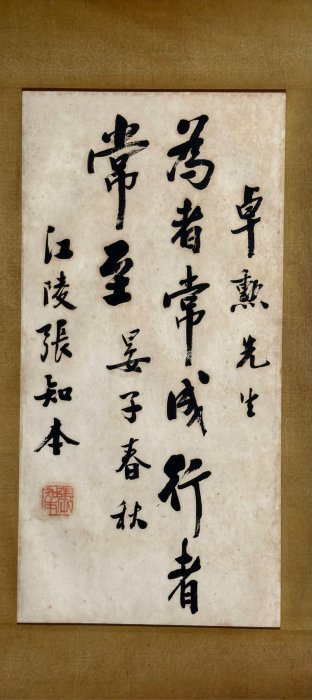 卓勲先生
為者常成行者
常至
晏子春秋
江陵張知本